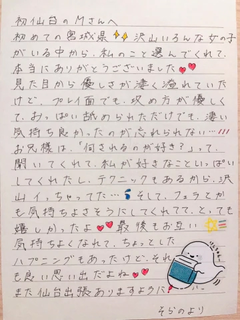 初仙台のMさんへ
初めての宮城県 沢山いろんな女の子
がいる中から、私のこと選んでくれて、
本当にありがとうございました
見た目から優しさが凄く溢れていた
けど、プレイ面でも、攻め方が優しく
て、おっぱい舐められただけでも、凄い
気持ち良かったのが忘れられない…
お兄様は、「何されるのが好き?」って、
聞いてくれて、私が好きなこといっぱい
してくれたし、テクニックもあるから、沢
山イっちゃってた… そして、フェラとか
も気持ちよさそうにしてくれてて、とっても
嬉しかったよ 最後もお互い
気持ちよくなれて、ちょっとした
ハプニングもあったけど、それ
も良い思い出だよね
また仙台出張ありますように
そらのより